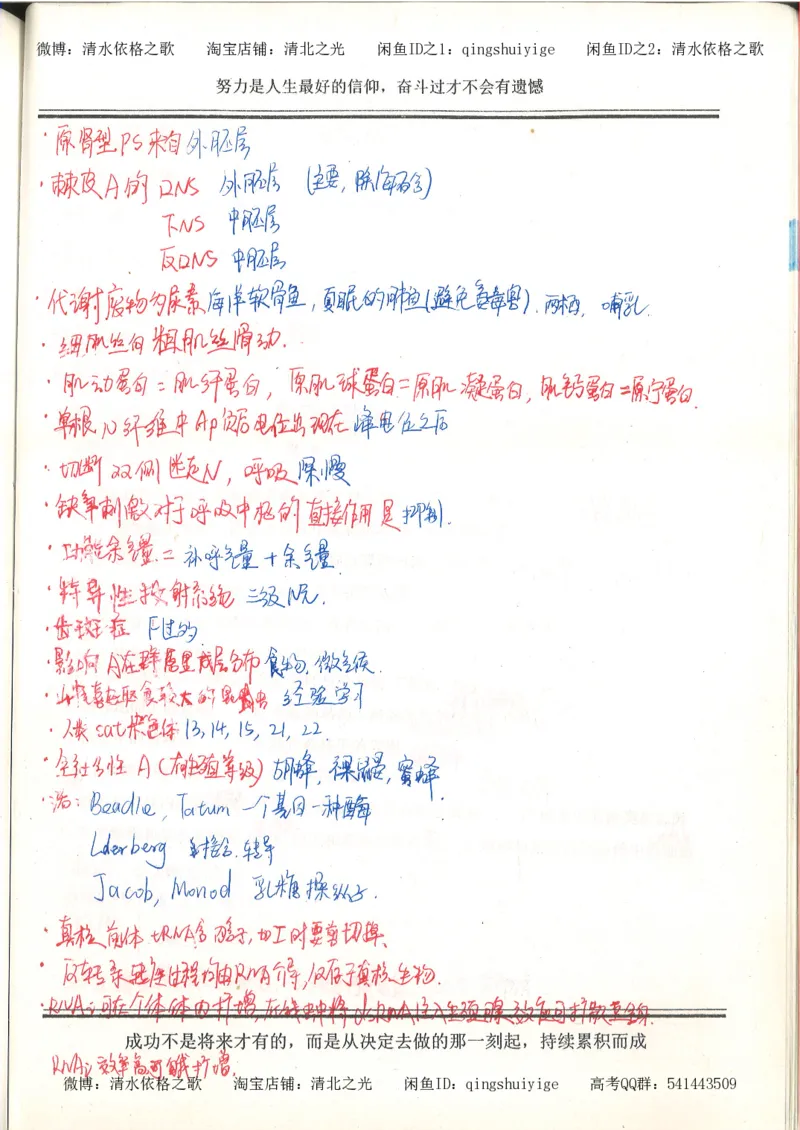 微博：清水依格之歌 淘宝店铺：清北之光 闲鱼ID之1：qingshuiyige 闲鱼ID之2：清水依格之歌
努力是人生最好的信仰，奋斗过才不会有遗憾
·原肾型PS来自 外胚层
·棘皮A的 口NS 外胚层 (主要，除海百合)
下NS 中胚层
反口NS 中胚层
·代谢废物为尿素 海洋软骨鱼，夏眠的肺鱼(避免氨毒害)．两栖，哺乳．
·细肌丝向粗肌丝滑动．
·肌动蛋白=肌纤蛋白，原肌球蛋白=原肌凝蛋白，肌钙蛋白=原宁蛋白．
·单根N纤维中Ap 负后电位出现在 峰电位之后
·切断双侧迷走N，呼吸 深慢
·缺氧刺激对于呼吸中枢的直接作用是 抑制．
·功能余气量= 补呼气量+余气量．
·特异性投射系统 三级N元．
·齿斑疹 F过的
·影响A在群落里成层分布 食物，微气候．
·喜欢取食较大的昆虫 经验学习
·人类sat染色体 13, 14, 15, 21, 22．
·全社会性A(有生殖等级) 胡蜂，裸鼹鼠，蜜蜂．
·诺：Beadle, Tatum 一个基因一种酶
Lderberg 接合．转导
Jacob, Monod 乳糖操纵子．
·真核前体tRNA含内含子，加工时要剪切掉．
·反转录转座过程均由RNA介导，仅存于真核生物．
·RNAi可在个体体内扩增，在线虫中将dsRNA注入 效应可扩散至全身．
成功不是将来才有的，而是从决定去做的那一刻起，持续累积而成
RNAi效率高可能扩增．
微博：清水依格之歌 淘宝店铺：清北之光 闲鱼ID：qingshuiyige 高考QQ群：541443509